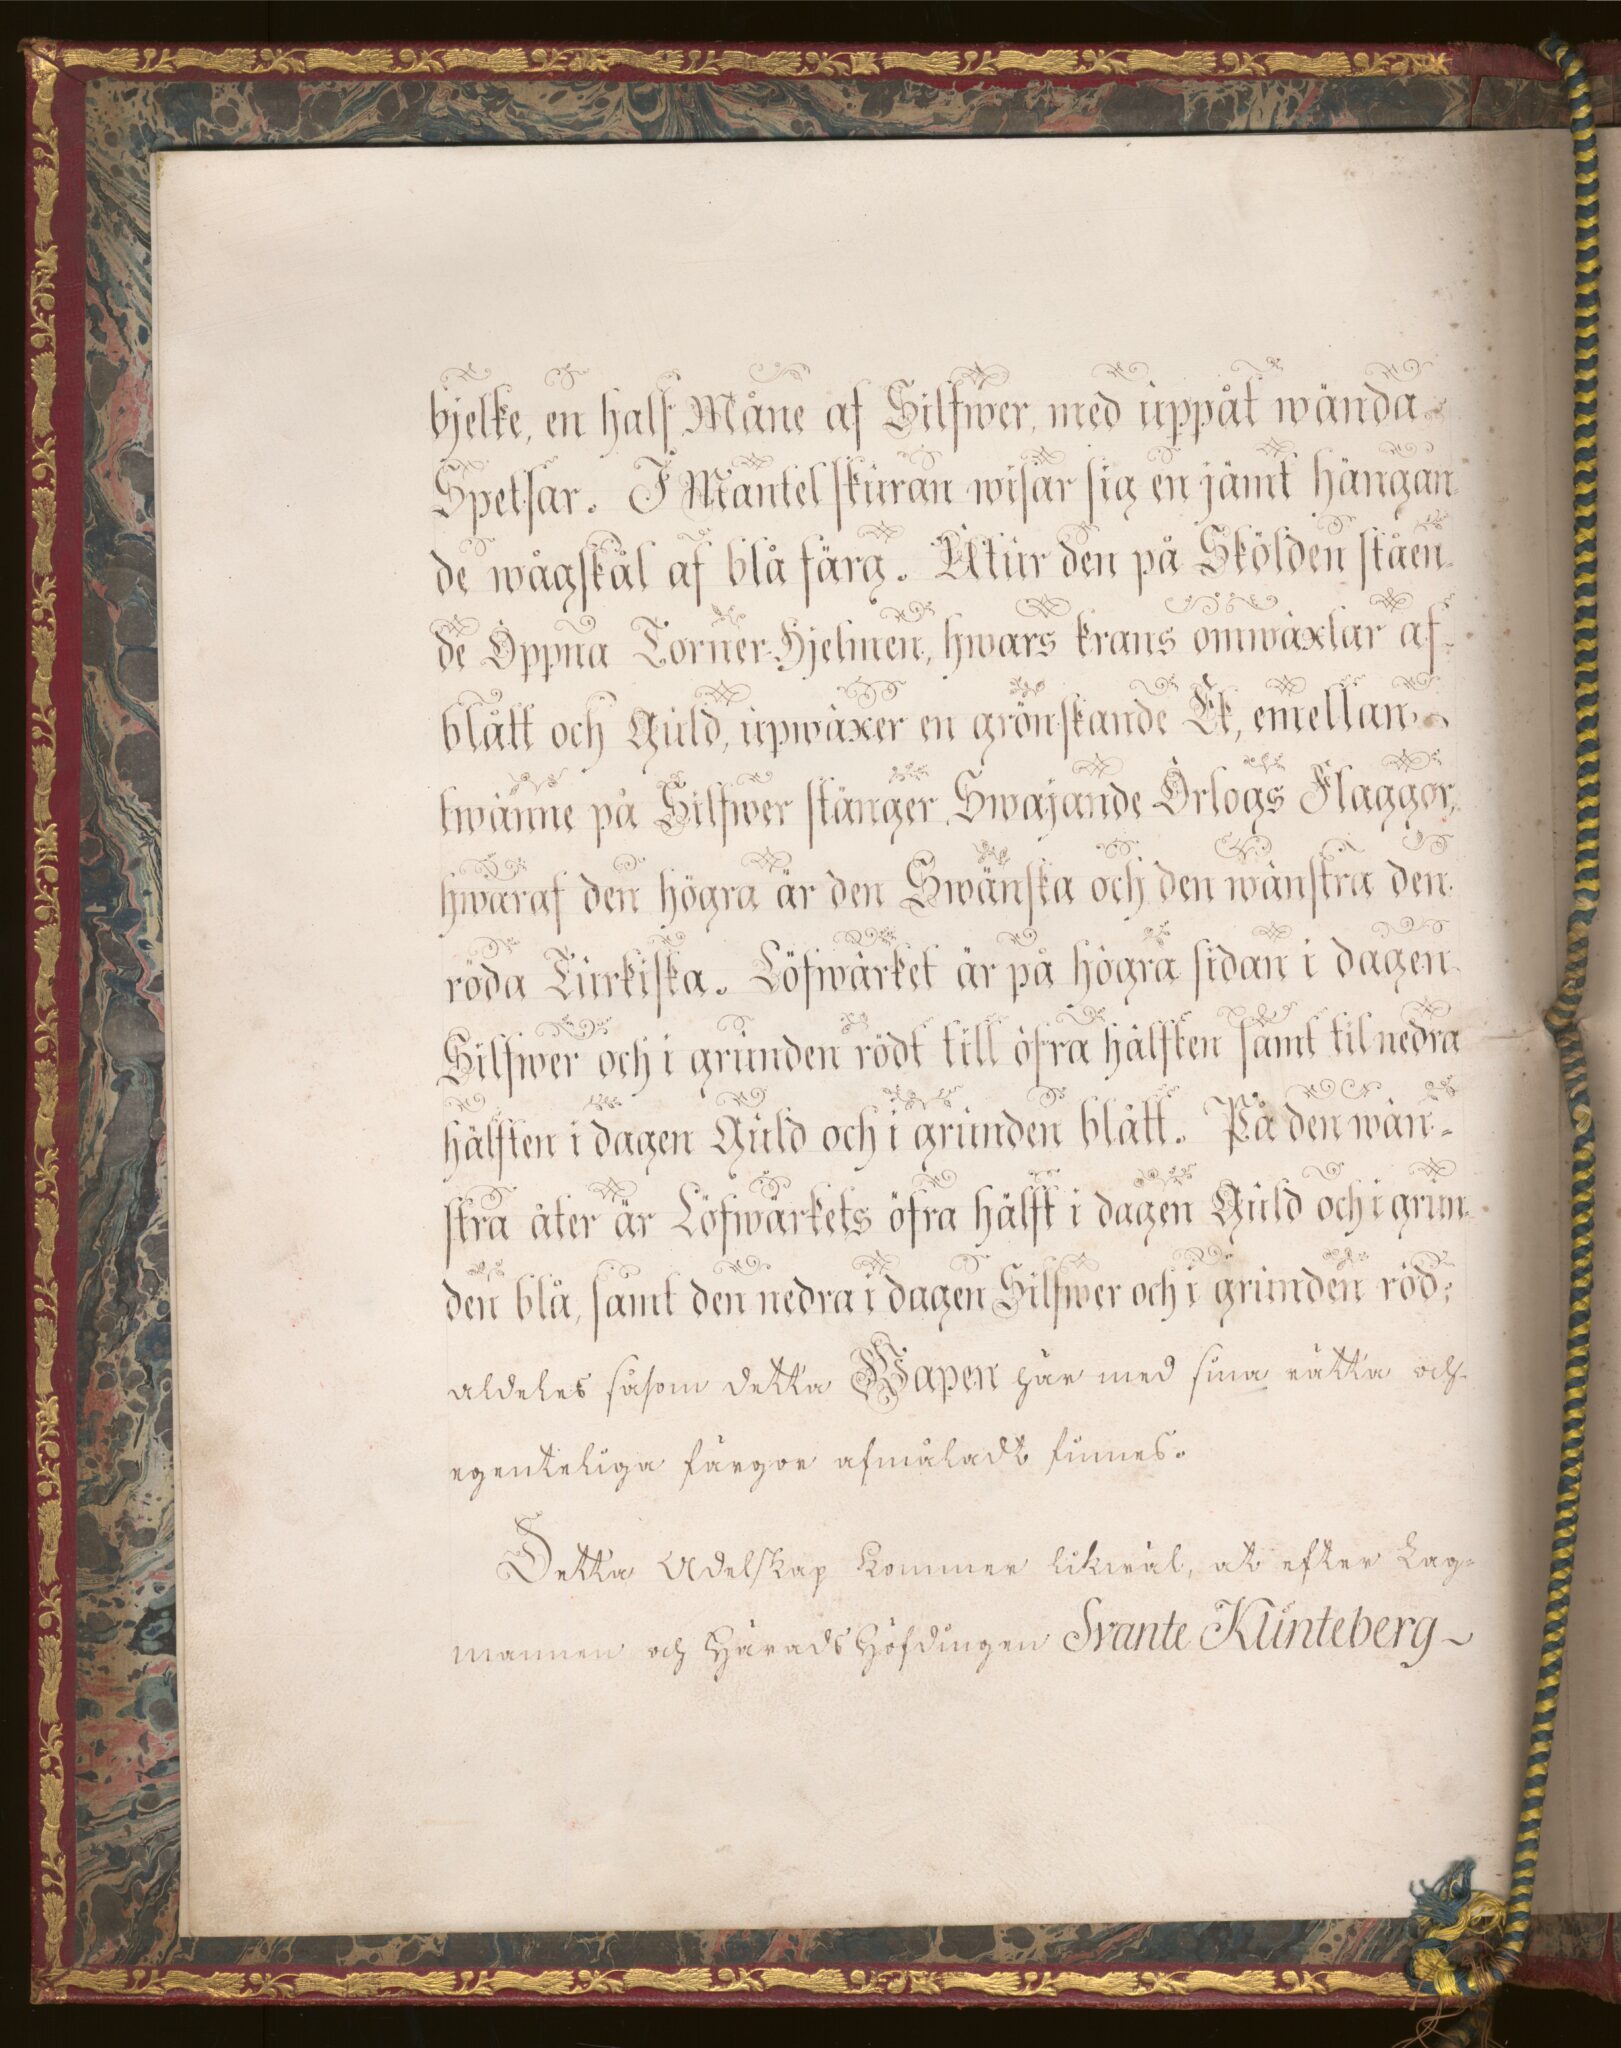 bjelke, en half Måne af Silfwer, med uppåt wända
Spetsar. I Mantelskuran wisar sig en jämt hängan-
de wågskål af blå färg. Utur den på Skölden ståen-
de Öppna Torner-Hjelmen, hwars krans omwäxlar af
blått och Guld, upwäxer en grönskande Ek, emellan
twänne på Silfwer stänger Swajande Örlogs Flaggor,
hwaraf den högra är den Swänska och den wänstra den
röda Turkiska. Löfwärket är på högra sidan i dagen
Silfwer och i grunden rödt till öfra hälften samt til nedra
hälften i dagen Guld och i grunden blått. På den wän-
stra åter är Löfwärkets öfra hälft i dagen Guld och i grun-
den blå, samt den nedra i dagen Silfwer och i grunden röd;
aldeles såsom detta Wapen här med sina rätta och
egenteliga färgor afmåladt finnes.
Detta Adelskap kommer likwäl, at efter Lag-
mannen och Härads Höfdingen Svante Kunteberg